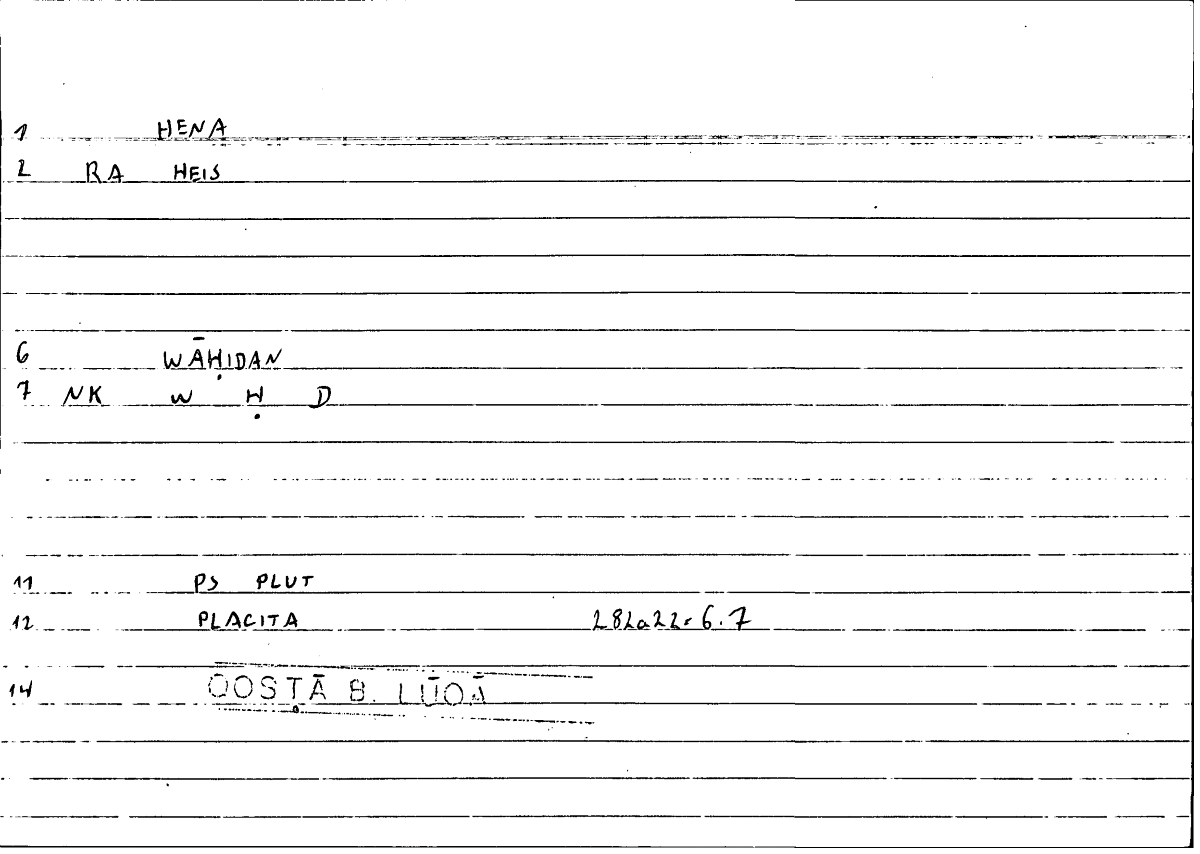 1 HENA
2 RA HEIS
6 WĀḤIDAN
7 NK W Ḥ D
11 PS PLUT
12 PLACITA 282a22-6.7
14 QOSṬĀ B. LŪQĀ